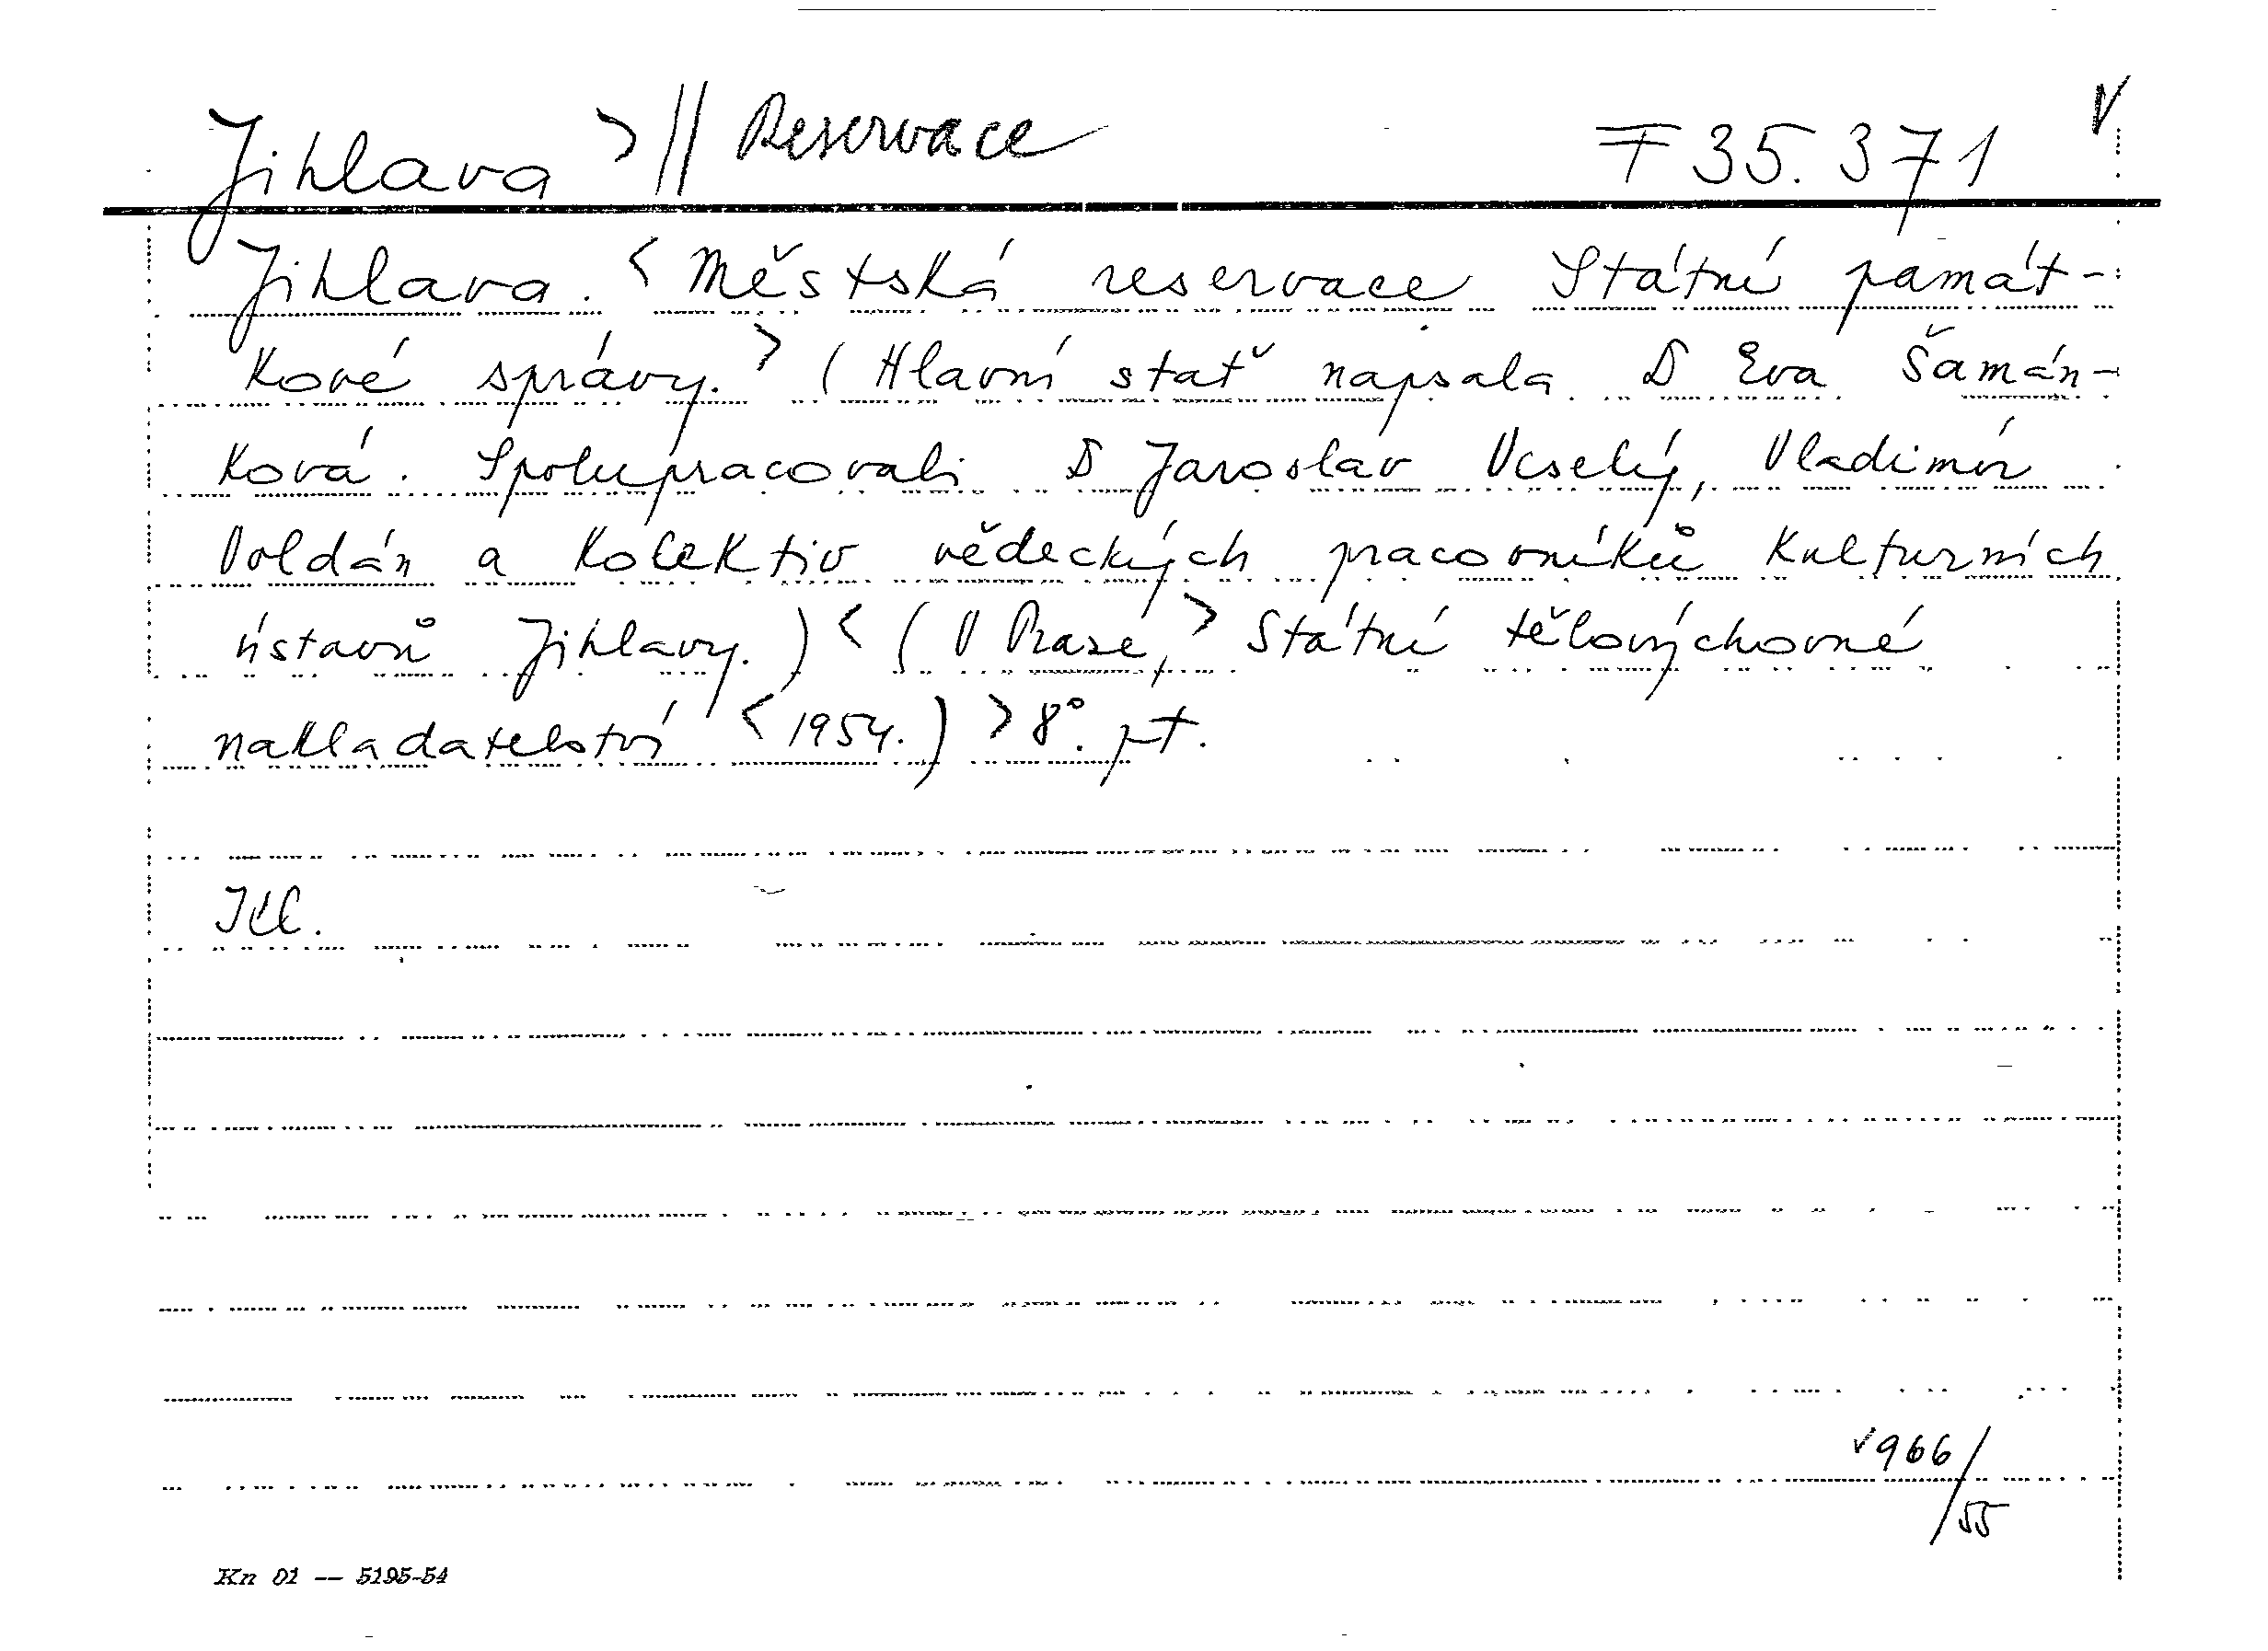 Jihlava > || Reservace F 35.371 V
Jihlava. < Městská reservace Státní památ-
kové správy. > (Hlavní stať napsala D Eva Šamán-
ková. Spolupracovali D Jaroslav Veselý, Vladimír
Voldán a kolektiv vědeckých pracovníků kulturních
ústavů Jihlavy.) < (V Praze, > Státní tělovýchovné
nakladatelství < 1954.) > 8°. pt.
Ill.
v 966/55
Kn 01 — 5195-54